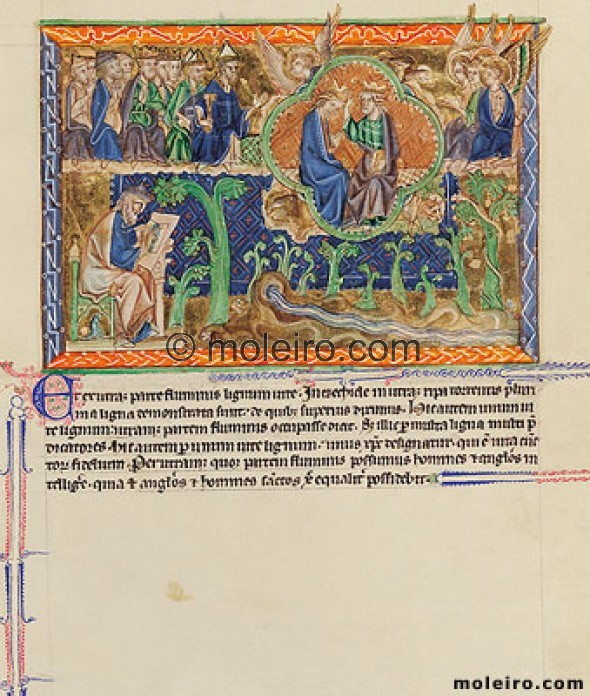 © moleiro.com
Et ex utraq; parte fluminis lignum uite. In iezechiele in utraq; ripa torrentis pluri
ma ligna demonstrata sunt: de quib; superius diximus. Hic autem unum ui
te lignum: utramq; partem fluminis occupasse dicit. Si illic p multa ligna multi p
dicatores. hic autem p unum uite lignum. unus xpc designatur. qui e uita cunc
tor fidelium. Per utramq; quoq; partem fluminis possumus homines & anglos in
tellige. quia & anglos & homines sctos equalit possidebit.
moleiro.com